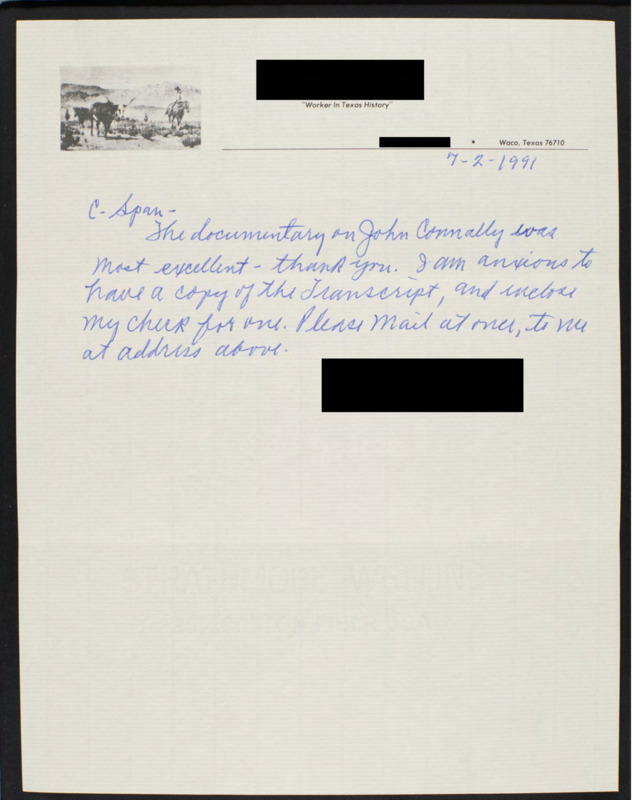 "Worker In Texas History"
• Waco, Texas 76710
7-2-1991
C-Span-
The documentary on John Connally was
most excellent - thank you. I am anxious to
have a copy of the Transcript, and inclose
my check for one. Please Mail at once, to me
at address above.